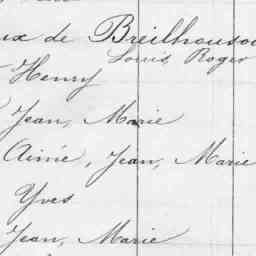 ux de Breilhouso
Louis Roger
Henry
Jean, Marie
Aimé, Jean, Marie
Yves
Jean, Marie